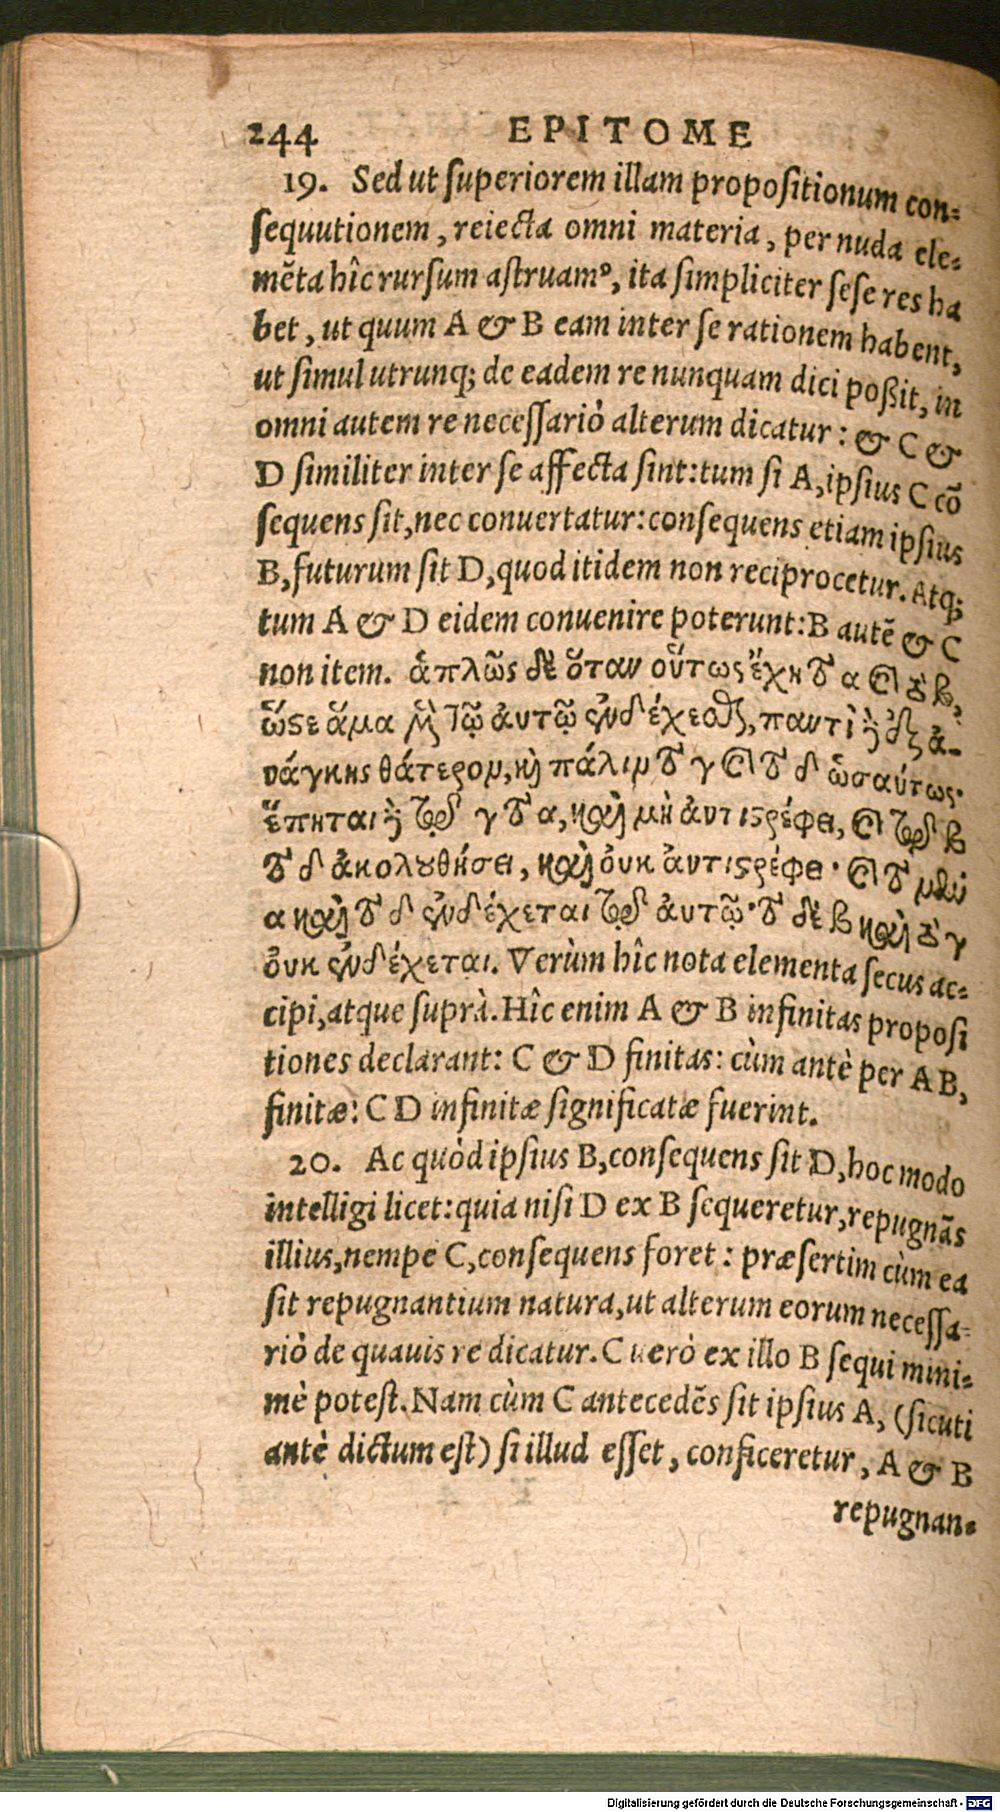 244 EPITOME
19. Sed ut ſuperiorem illam propoſitionum con-
ſequutionem, reiecta omni materia, per nuda ele-
mẽta hîc rurſum aſtruamꝰ, ita ſimpliciter ſeſe res ha
bet, ut quum A & B eam inter ſe rationem habent,
ut ſimul utrunq; de eadem re nunquam dici poßit, in
omni autem re neceſſariò alterum dicatur: & C &
D ſimiliter inter ſe affecta ſint: tum ſi A, ipſius C cõ
ſequens ſit, nec conuertatur: conſequens etiam ipſius
B, futurum ſit D, quod itidem non reciprocetur. Atq;
tum A & D eidem conuenire poterunt: B autẽ & C
non item. ἁπλῶς δὲ ὅταν οὕτως ἔχη τὸ α καὶ τὸ β,
ὥστε ἅμα μὴ τῷ ἀυτῷ ἐνδέχεσθαι, παντὶ ἢ ἐξ ἀ-
νάγκης θάτερον, κὶ πάλιν τὸ γ καὶ τὸ δ ὡσαύτως·
ἕπηται ἢ τῷ γ τὸ α, καὶ μὴ ἀντιστρέφει, καὶ τῷ β
τὸ δ ἀκολουθήσει, καὶ ὀυκ ἀντιστρέφει· καὶ τὸ μὲν
α καὶ τὸ δ ἐνδέχεται τῷ ἀυτῷ· τὸ δὲ β καὶ τὸ γ
ὀυκ ἐνδέχεται. Verùm hîc nota elementa ſecus ac-
cipi, atque ſuprà. Hîc enim A & B infinitas propoſi
tiones declarant: C & D finitas: cùm antè per A B,
finitæ: C D infinitæ ſignificatæ fuerint.
20. Ac quòd ipſius B, conſequens ſit D, hoc modo
intelligi licet: quia niſi D ex B ſequeretur, repugnãs
illius, nempe C, conſequens foret: præſertim cùm ea
ſit repugnantium natura, ut alterum eorum neceſſa-
riò de quauis re dicatur. C uerò ex illo B ſequi mini-
mè poteſt. Nam cùm C antecedẽs ſit ipſius A, (ſicuti
antè dictum eſt) ſi illud eſſet, conficeretur, A & B
repugnan-
Digitalisierung gefördert durch die Deutsche Forschungsgemeinschaft - DFG